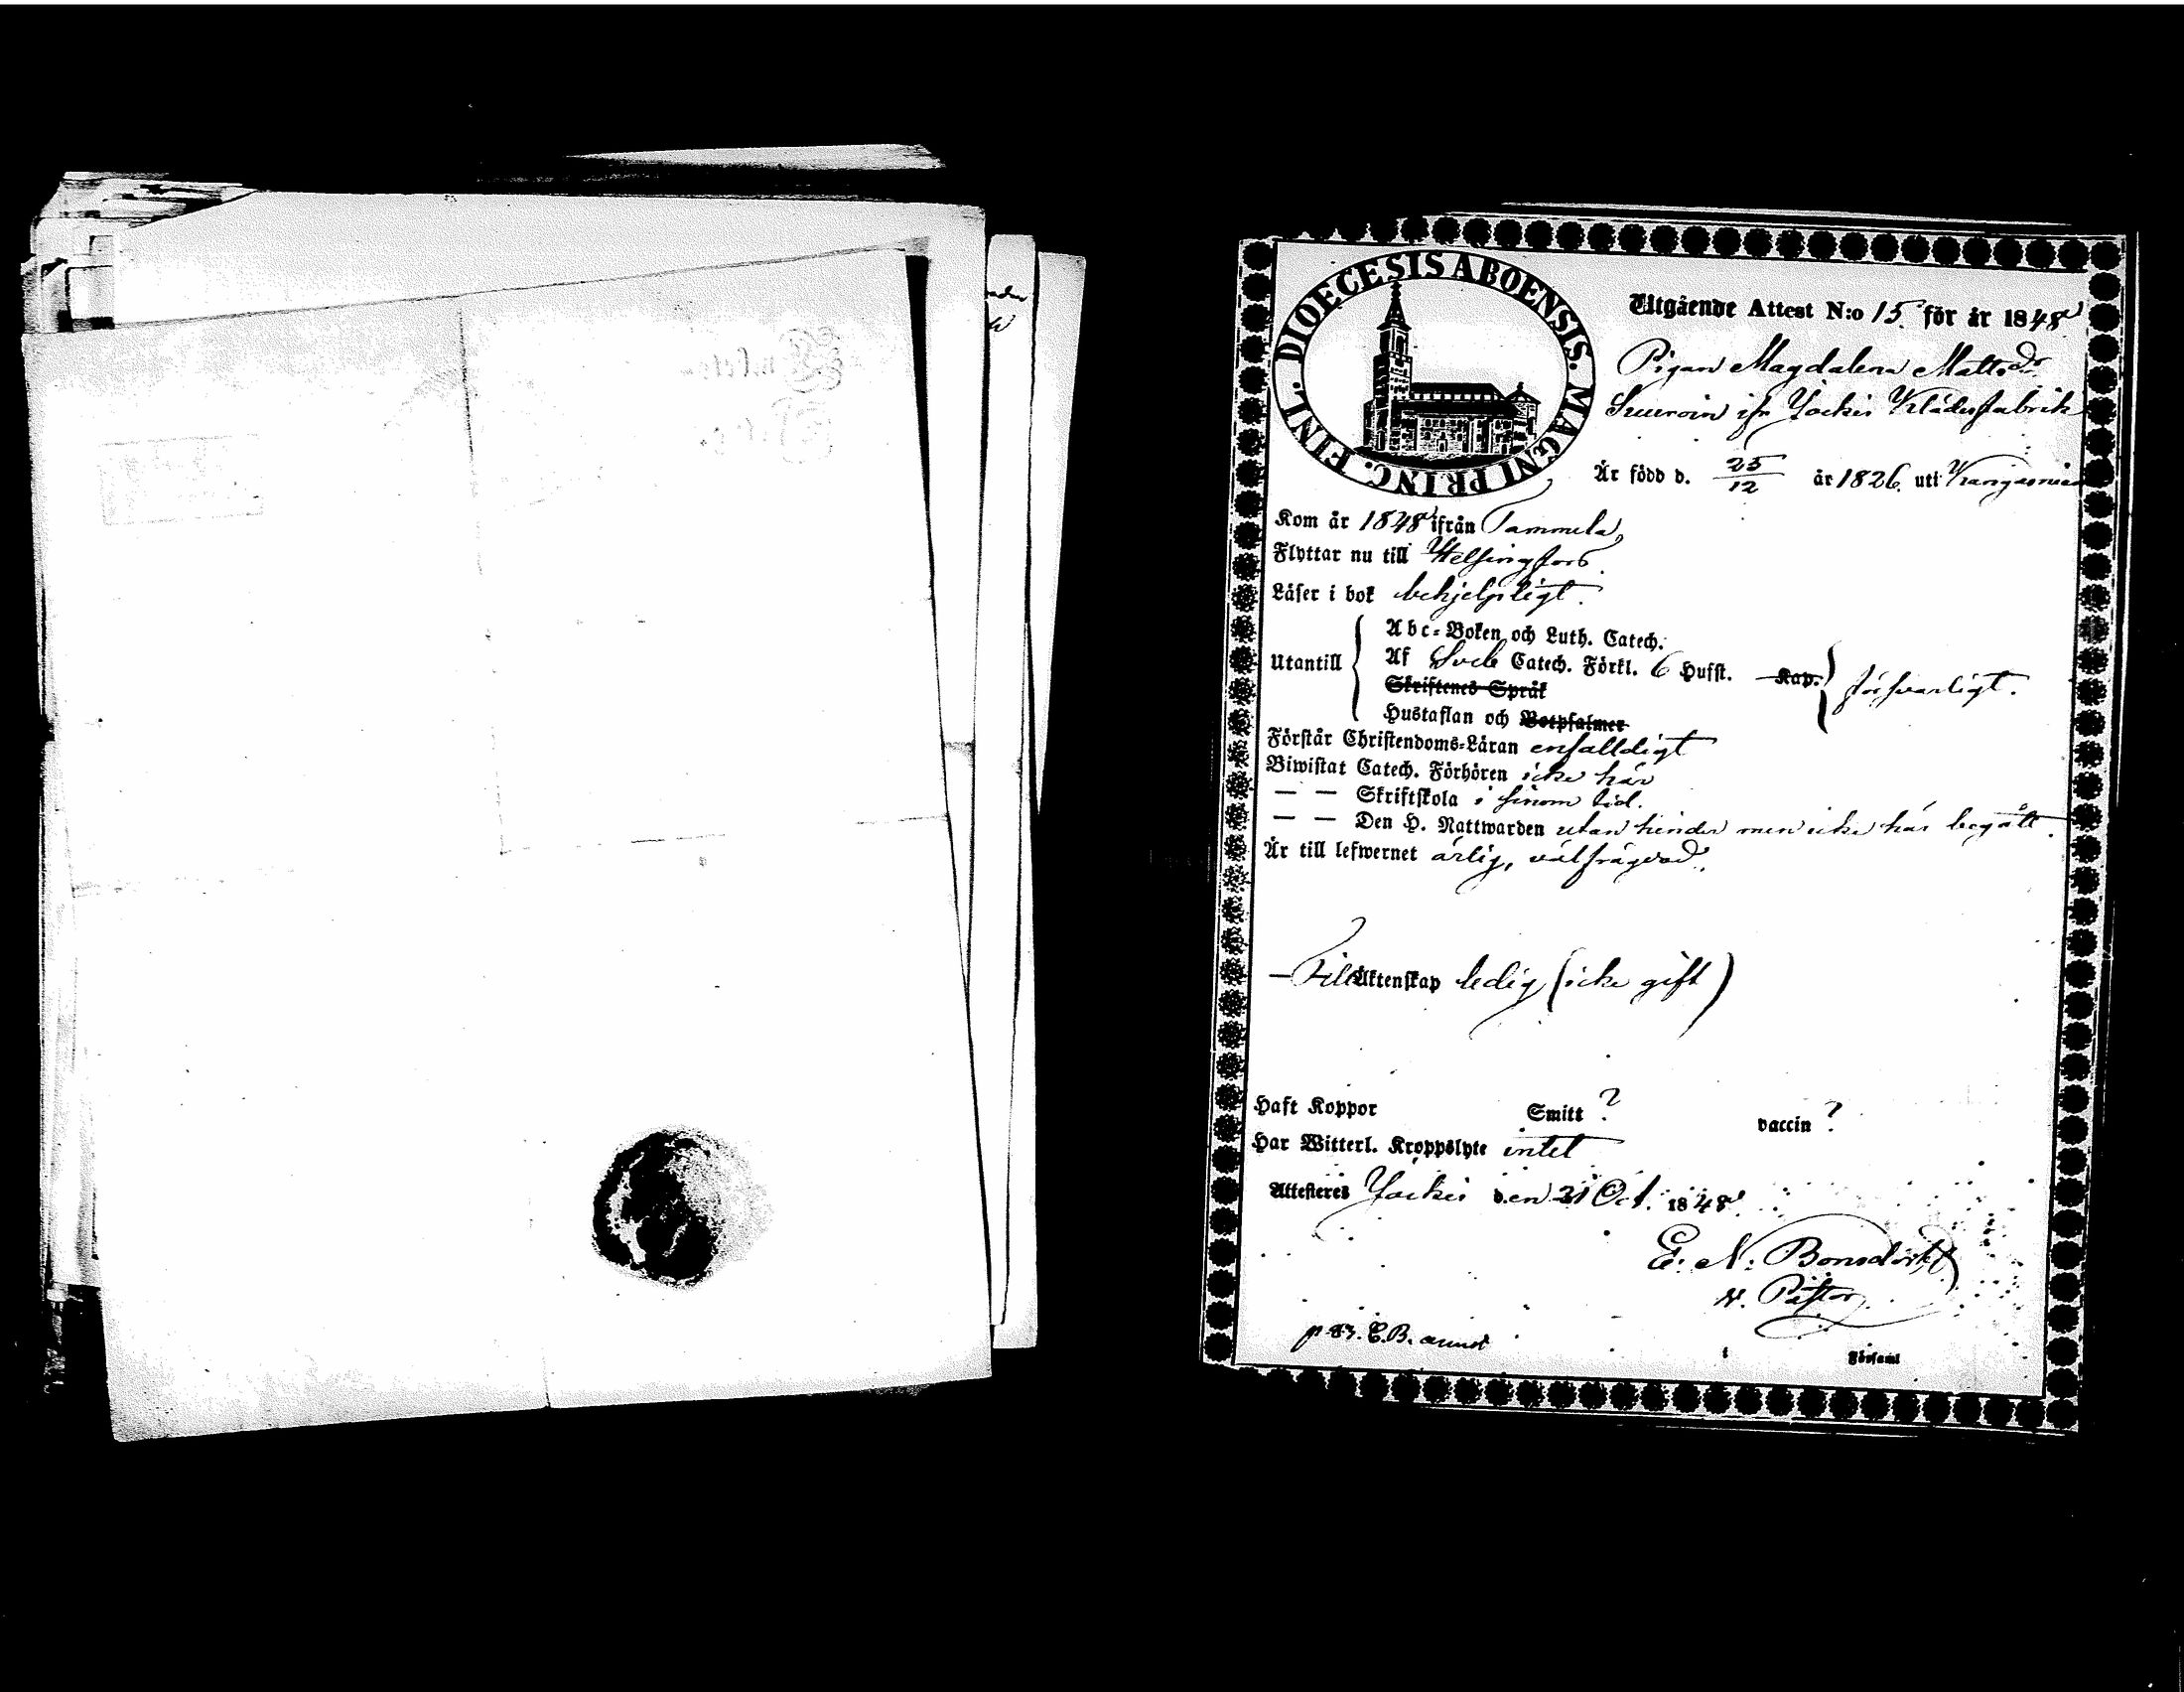 DIOECESIS ABOENSIS. MAGNI PRINC. FINL.
Utgående Attest N:o 15. för år 1848
Pigan Magdalena Mattsdr
ifr. Jockis Klädesfabrik
Är född d. 25/12 år 1826. uti
Kom år 1848 ifrån Tammela,
Flyttar nu till Helsingfors.
Läser i bok behjelpligt.
Abc-Boken och Luth. Catech.
Utantill Af Sveb Catech. Förkl. 6 Hufst. Kap. försvarligt.
Skriftenes Språk
Hustaflan och Botpsalmer
Förstår Christendoms-Läran enfalldigt
Biwistat Catech. Förhören icke här
— — Skriftskola i sinom tid.
— — Den H. Nattwarden utan hinder men icke här begått.
Är till lefwernet ärlig, välfrägdad.
— Till Äktenskap ledig (icke gift)
Haft Koppor Smitt ? vaccin ?
Har Witterl. Kroppslyte intet
Attesteras Jockis den 31 Oct. 1848.
E. N. Bonsdorff
v. Pastor
p 83. C.B.
Församl